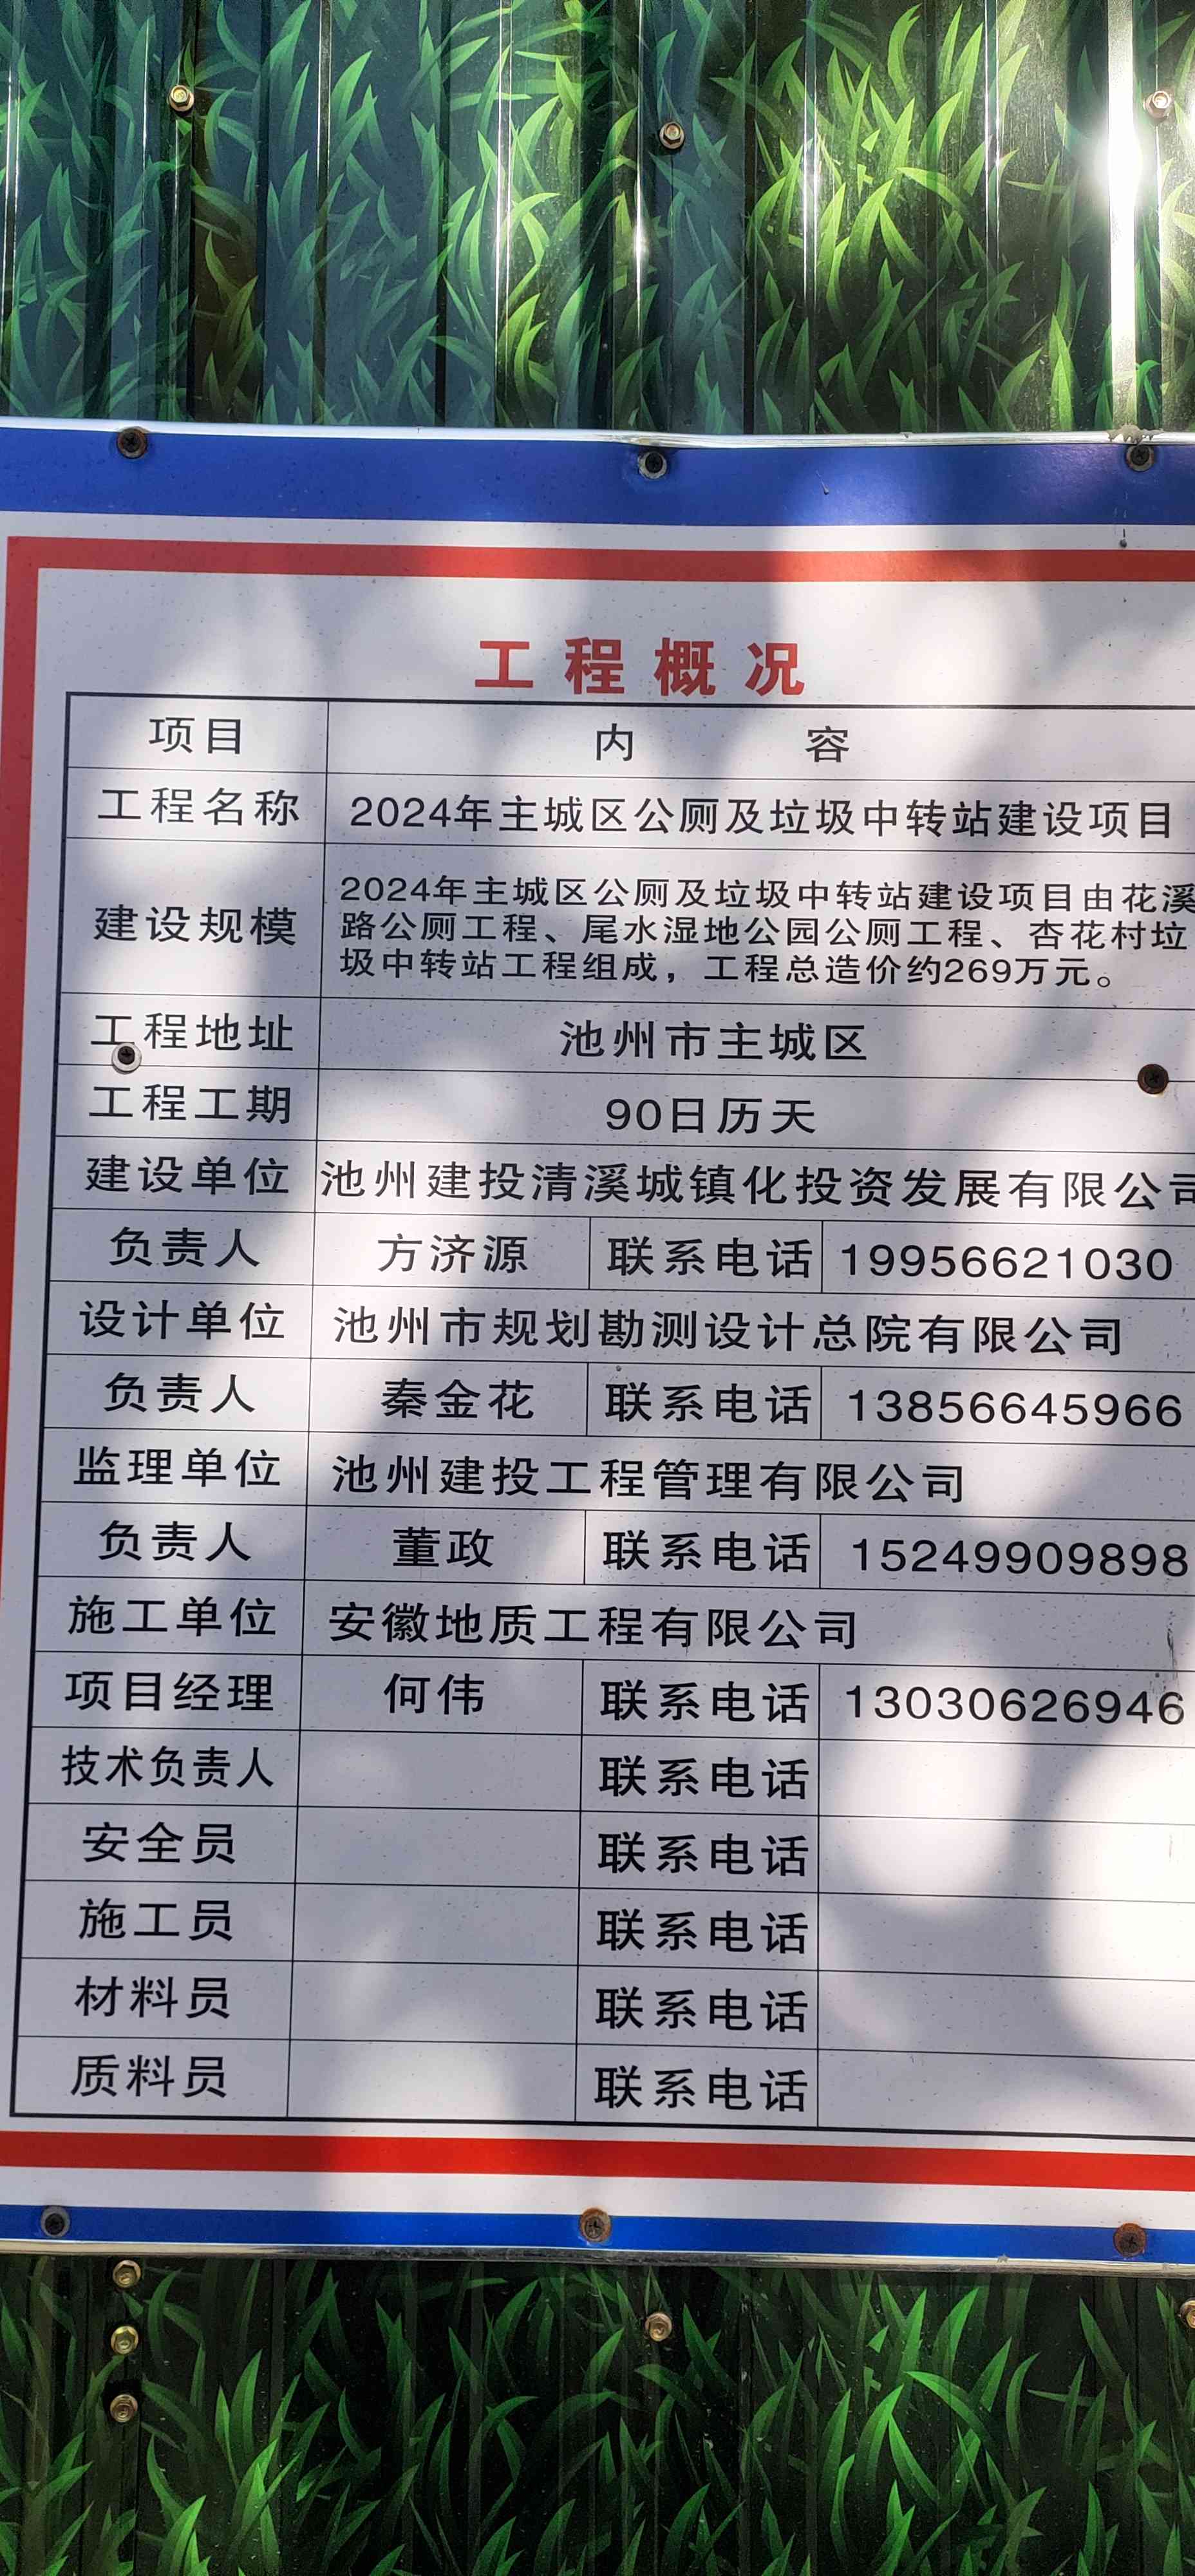 工程概况
项目 内 容
工程名称 2024年主城区公厕及垃圾中转站建设项目
建设规模 2024年主城区公厕及垃圾中转站建设项目由花溪
路公厕工程、尾水湿地公园公厕工程、杏花村垃
圾中转站工程组成，工程总造价约269万元。
工程地址 池州市主城区
工程工期 90日历天
建设单位 池州建投清溪城镇化投资发展有限公司
负责人 方济源 联系电话 19956621030
设计单位 池州市规划勘测设计总院有限公司
负责人 秦金花 联系电话 13856645966
监理单位 池州建投工程管理有限公司
负责人 董政 联系电话 15249909898
施工单位 安徽地质工程有限公司
项目经理 何伟 联系电话 13030626946
技术负责人 联系电话
安全员 联系电话
施工员 联系电话
材料员 联系电话
质料员 联系电话